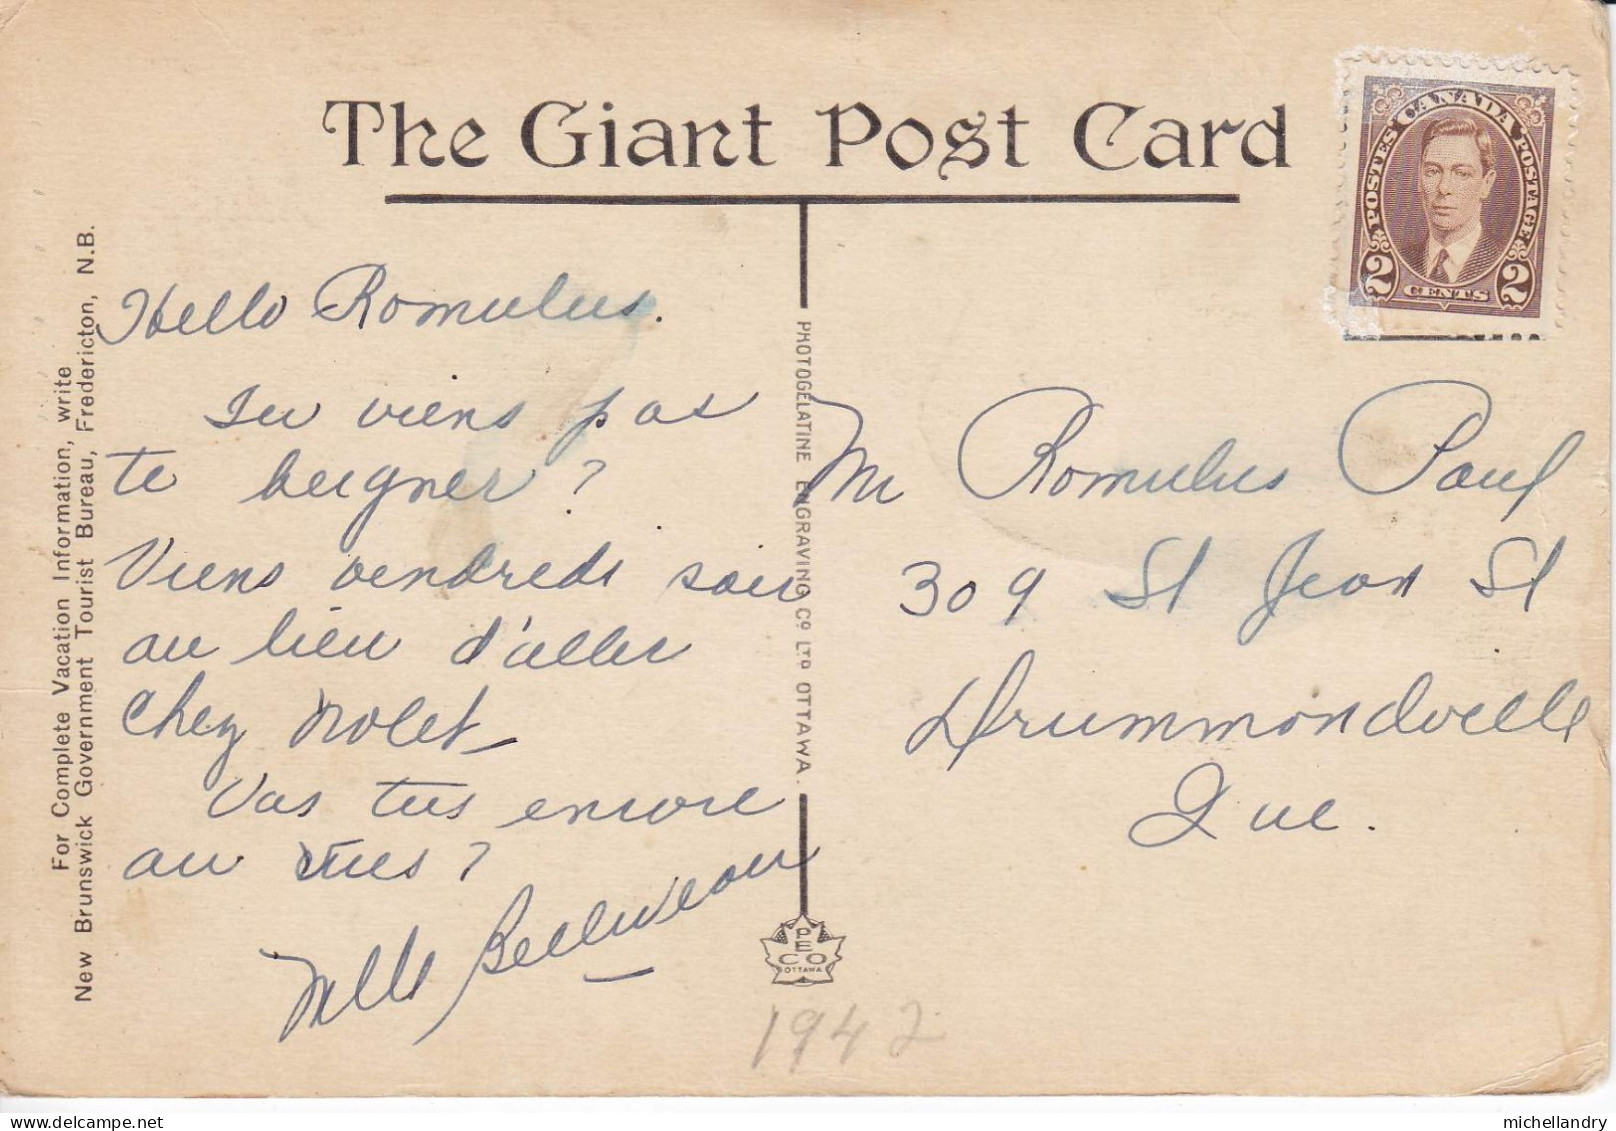 The Giant Post Card
POSTES CANADA POSTAGE
2 CENTS 2
For Complete Vacation Information, write
New Brunswick Government Tourist Bureau, Fredericton, N.B.
Hello Romulus.
Tu viens pas
te beigner ?
Viens vendredi soir
au lieu d'aller
chez Nolet
Vas tus encore
au ?
Mlle
PHOTOGELATINE ENGRAVING CO LTD OTTAWA.
PECO
OTTAWA
Mr Romulus Paul
309 St Jean St
Drummondville
Que.
1942
michellandry